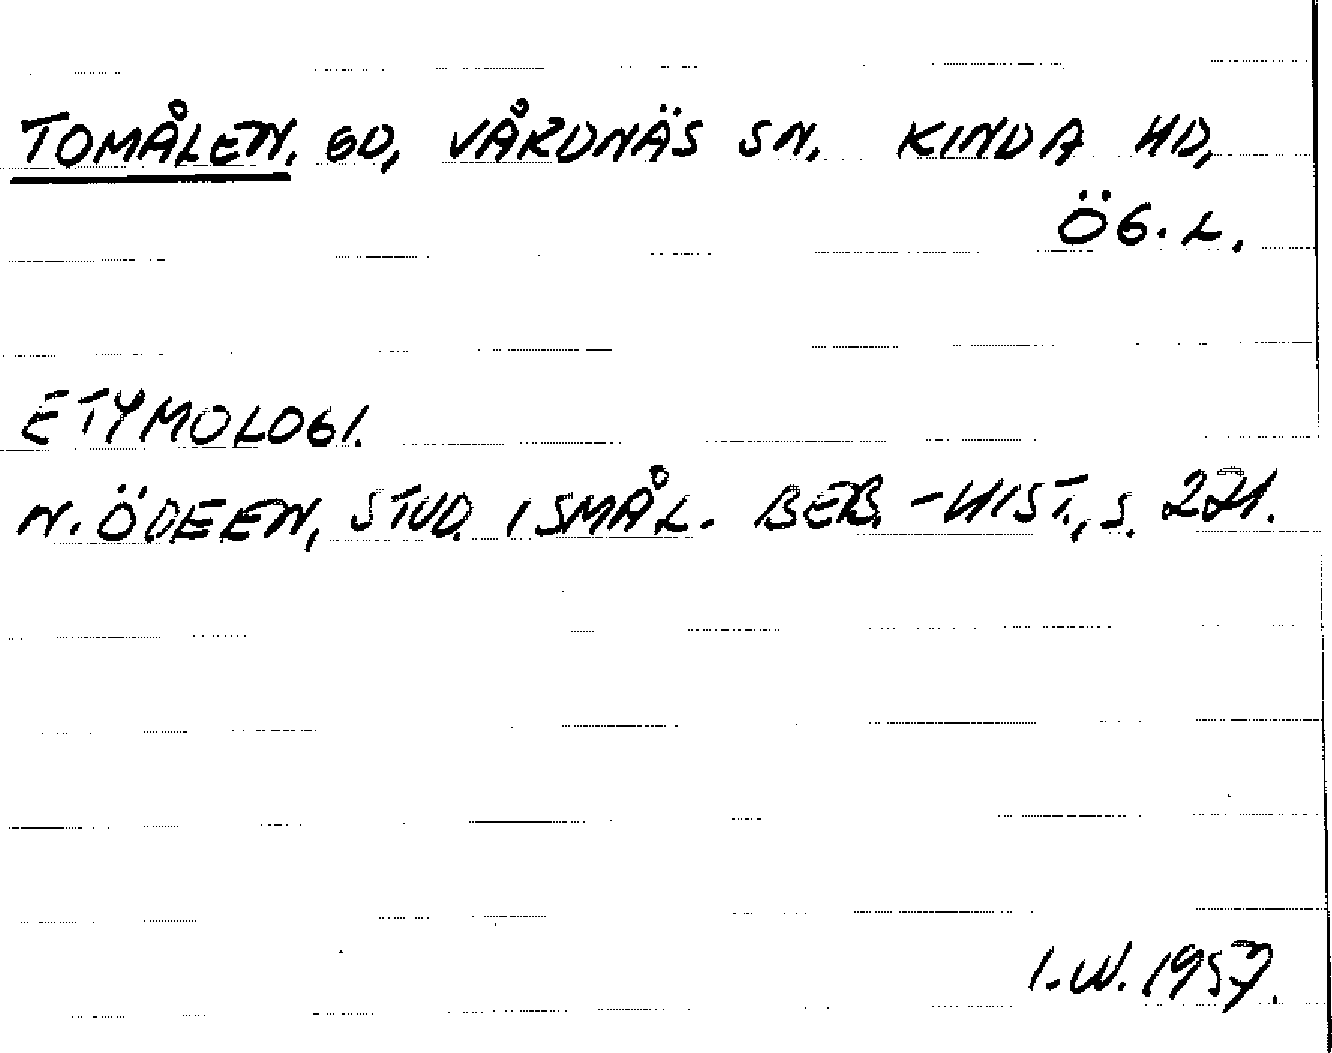 TOMÅLEN. GD, VÅRDNÄS SN. KINDA HD,
ÖG.L.
ETYMOLOGI.
N. ÖDEEN, STUD. I SMÅL. BEB.-HIST., S. 271.
I.W. 1957.